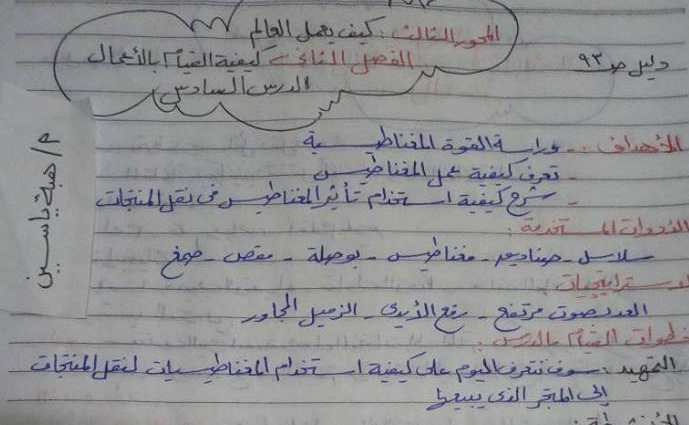 المحور الثالث : كيف يعمل العالم
الفصل الثاني : كيفية القيام بالأعمال
دليل ص ٩٣
الدرس السادس
م / هبة ياسين
الأهداف : - دراسة القوة المغناطيسية
- تعرف كيفية عمل المغناطيس
- شرح كيفية استخدام تأثير المغناطيس فى نقل المنتجات
الأدوات المستخدمة :
سلاسل - صناديق - مغناطيس - بوصلة - مقص - صمغ
استراتيجيات :
العدد صوت مرتفع - رفع الأيدى - الزميل المجاور
خطوات القيام بالدرس :
التمهيد : سوف نتعرف اليوم على كيفية استخدام المغناطيسيات لنقل المنتجات
إلى المتجر الذى يبيعها
الأنشطة :